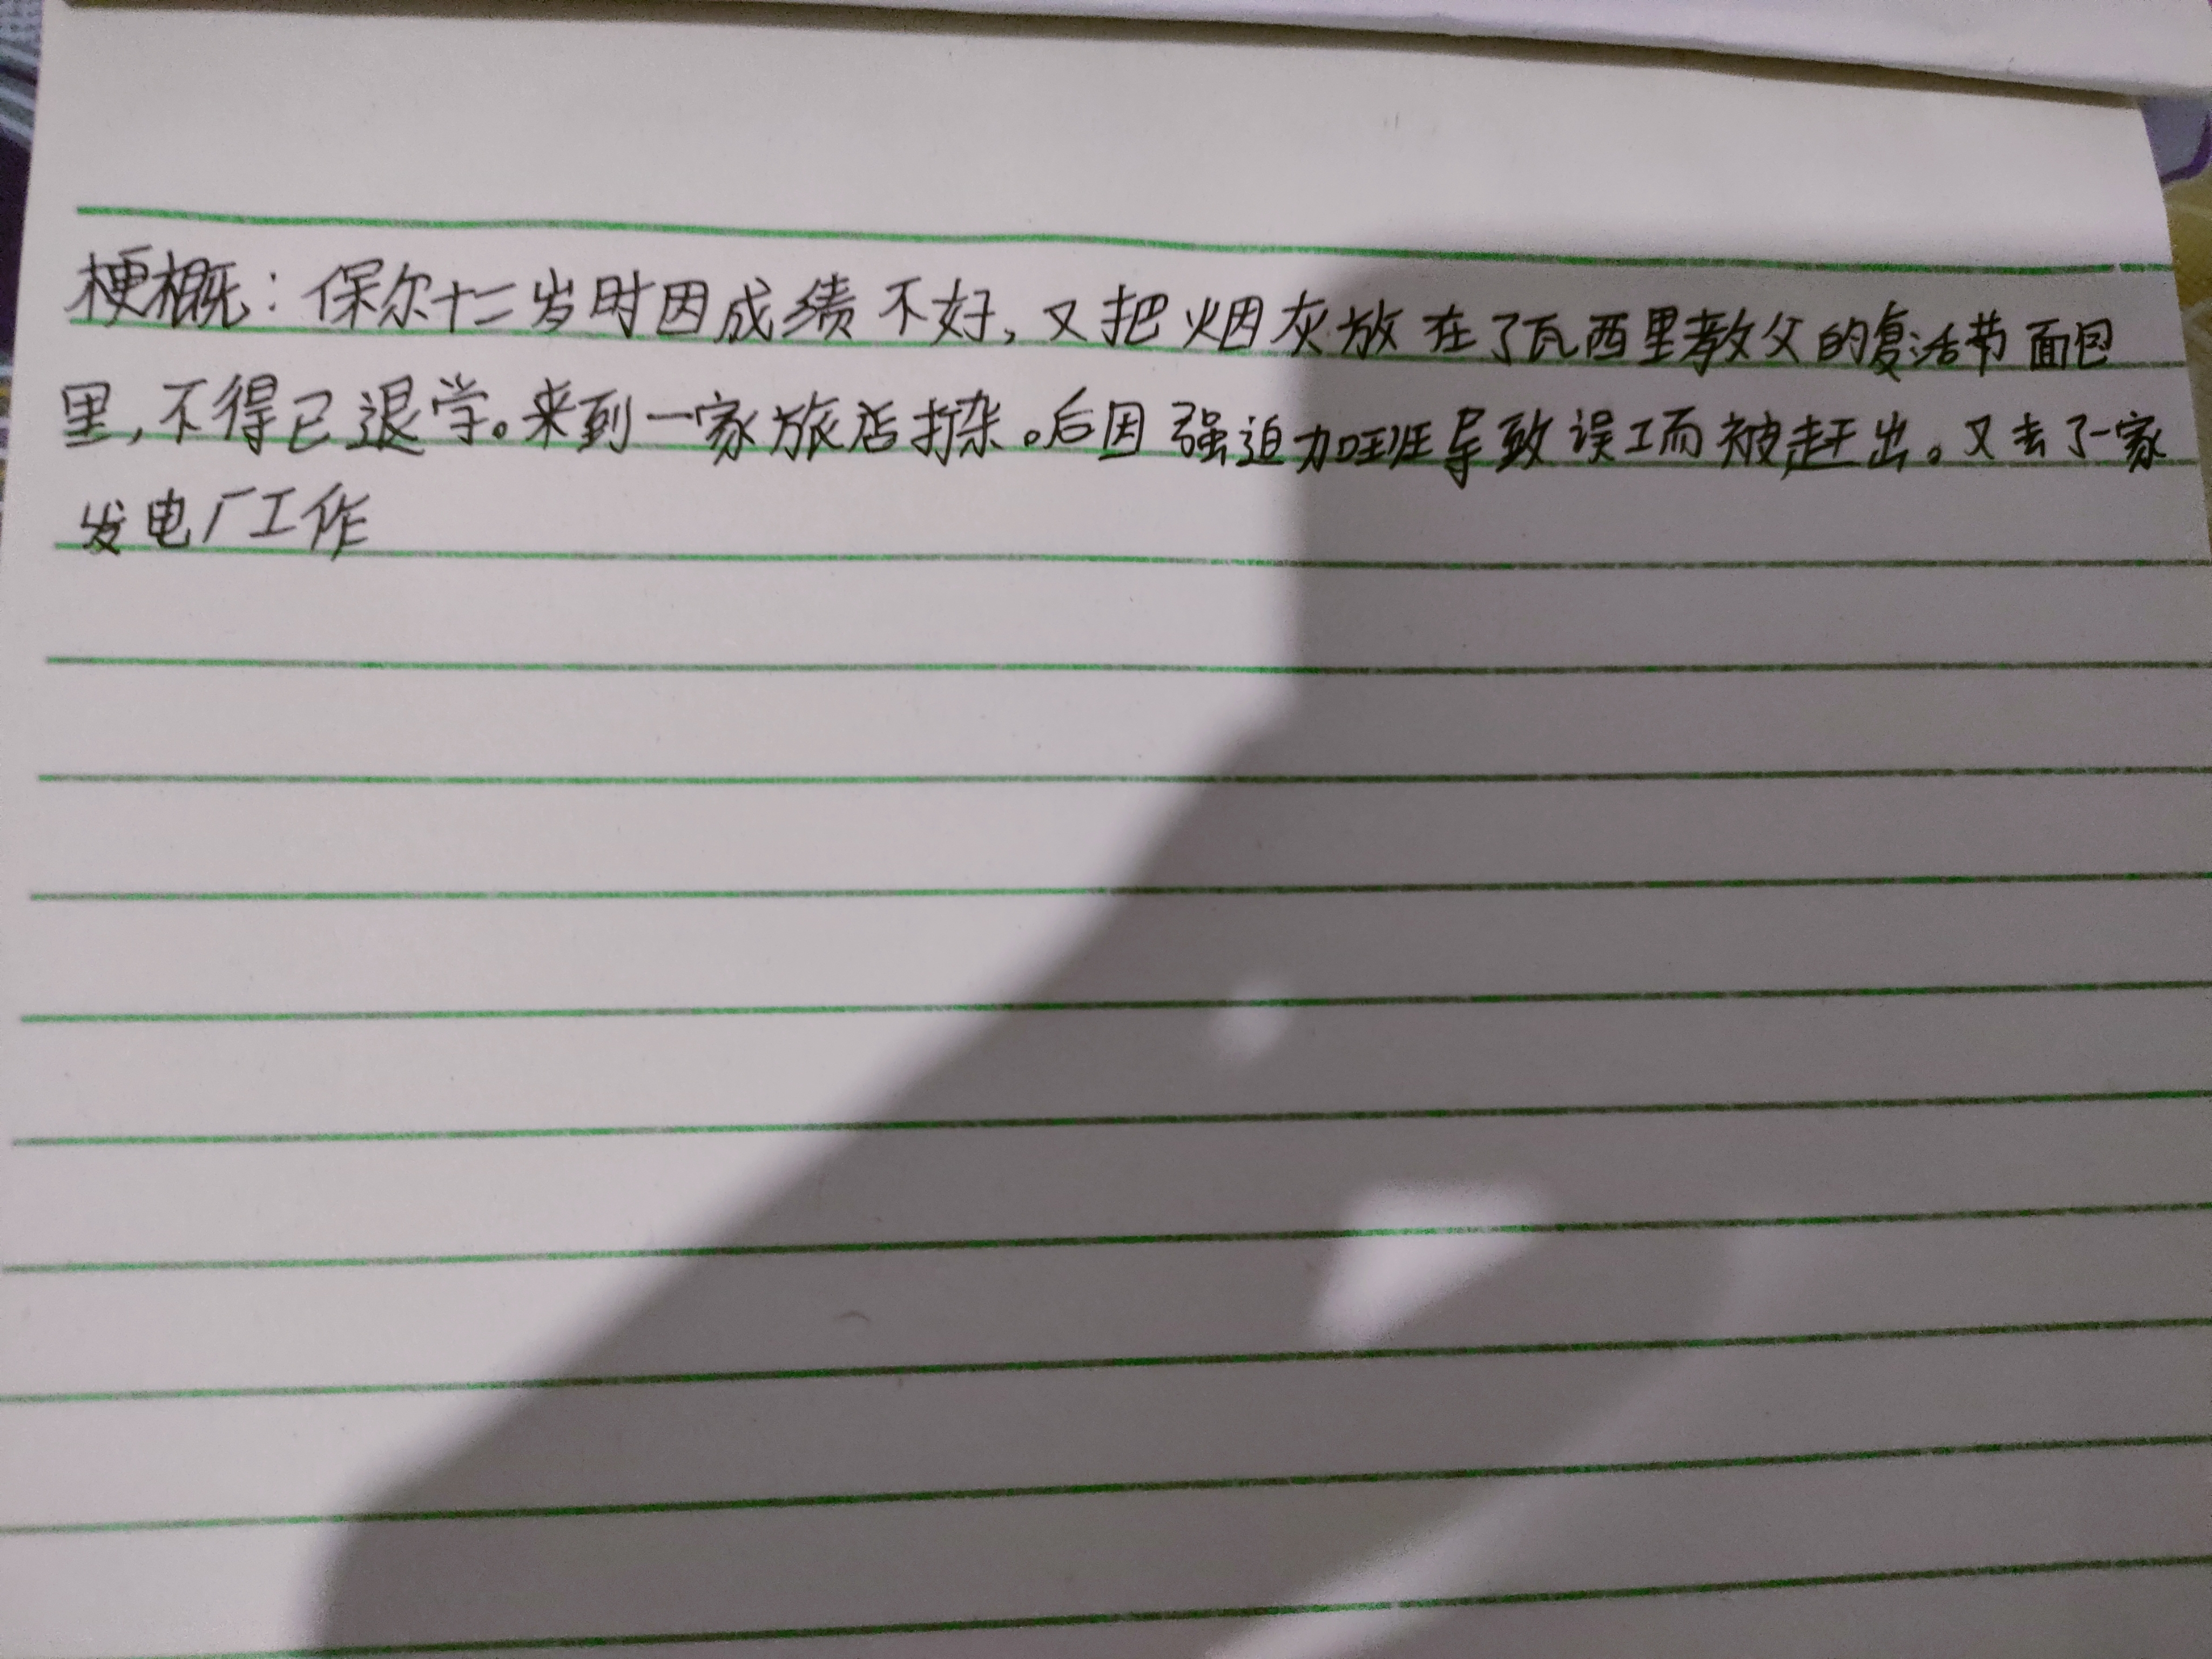 梗概：保尔十二岁时因成绩不好，又把烟灰放在了瓦西里教父的复活节面包
里，不得已退学。来到一家旅店打杂。后因强迫加班导致误工而被赶出。又去了一家
发电厂工作